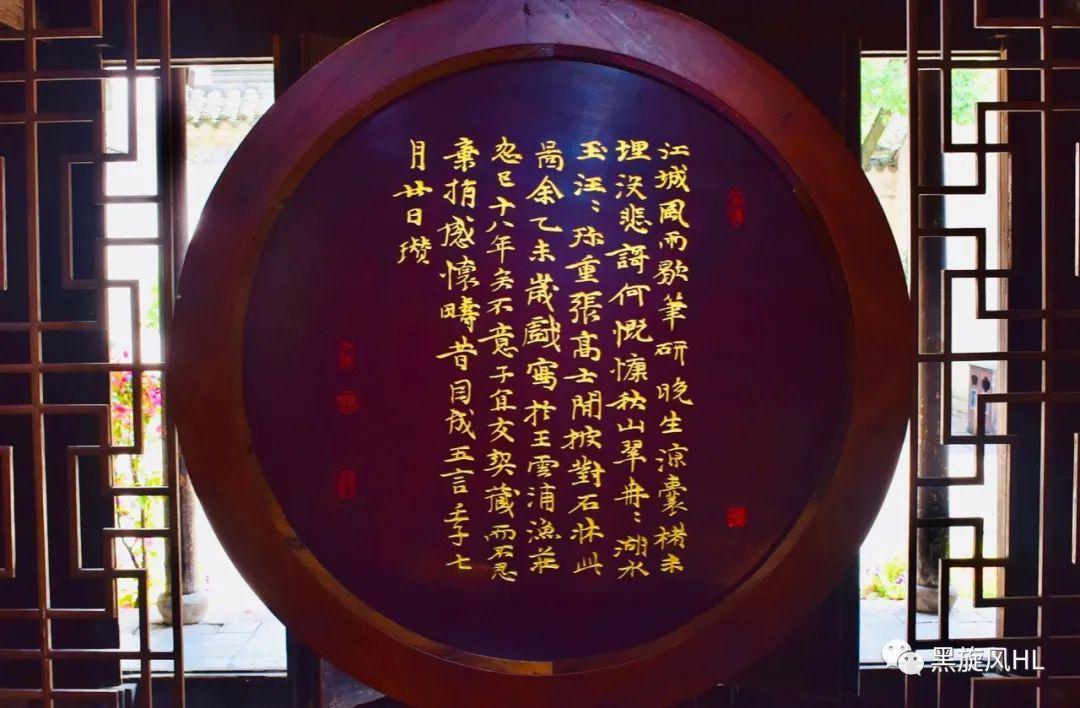 江城風雨歇筆研晚生涼囊楮未
埋没悲謌何慨慷秋山翠冉〻湖水
玉汪〻珎重張高士閒披對石牀此
啚余乙未歲戲寫扵王雲浦漁莊
忽已十八年矣不意子宜友契藏而不忍
棄捐感懷疇昔因成五言壬子七
月廿日瓚
黑旋风HL